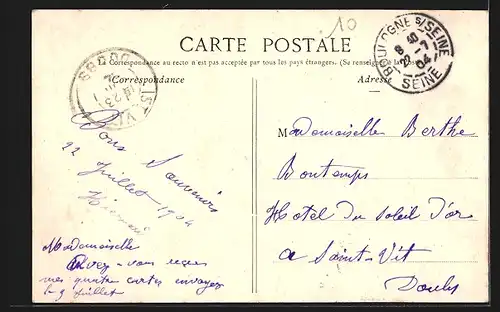 10
CARTE POSTALE
La Correspondance au recto n'est pas acceptée par tous les pays étrangers. (Se renseigner à la
Correspondance
Adresse
BOULOGNE S/SEINE
8 40
22 - 7
04
SEINE
ST VIT
23
DOUBS
Bons Souvenirs
22 Juillet 1904
Mademoiselle
Avez-vous reçues
mes quatre cartes envoyées
le 9 Juillet
Mademoiselle Berthe
Bontemps
Hotel Du Soleil D'or
a Saint-Vit
Doubs